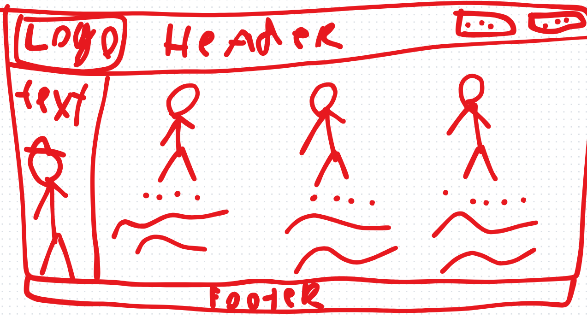 Logo Header
text
Footer